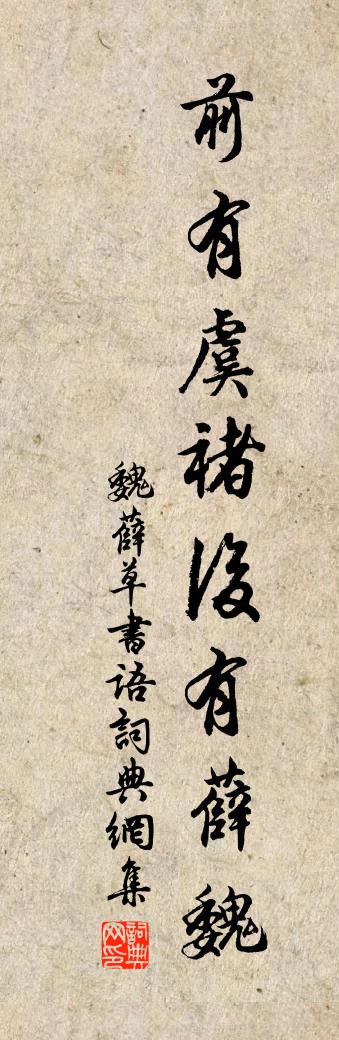 前有虞褚後有薛魏
魏薛草書語詞典網集
詞典
网印